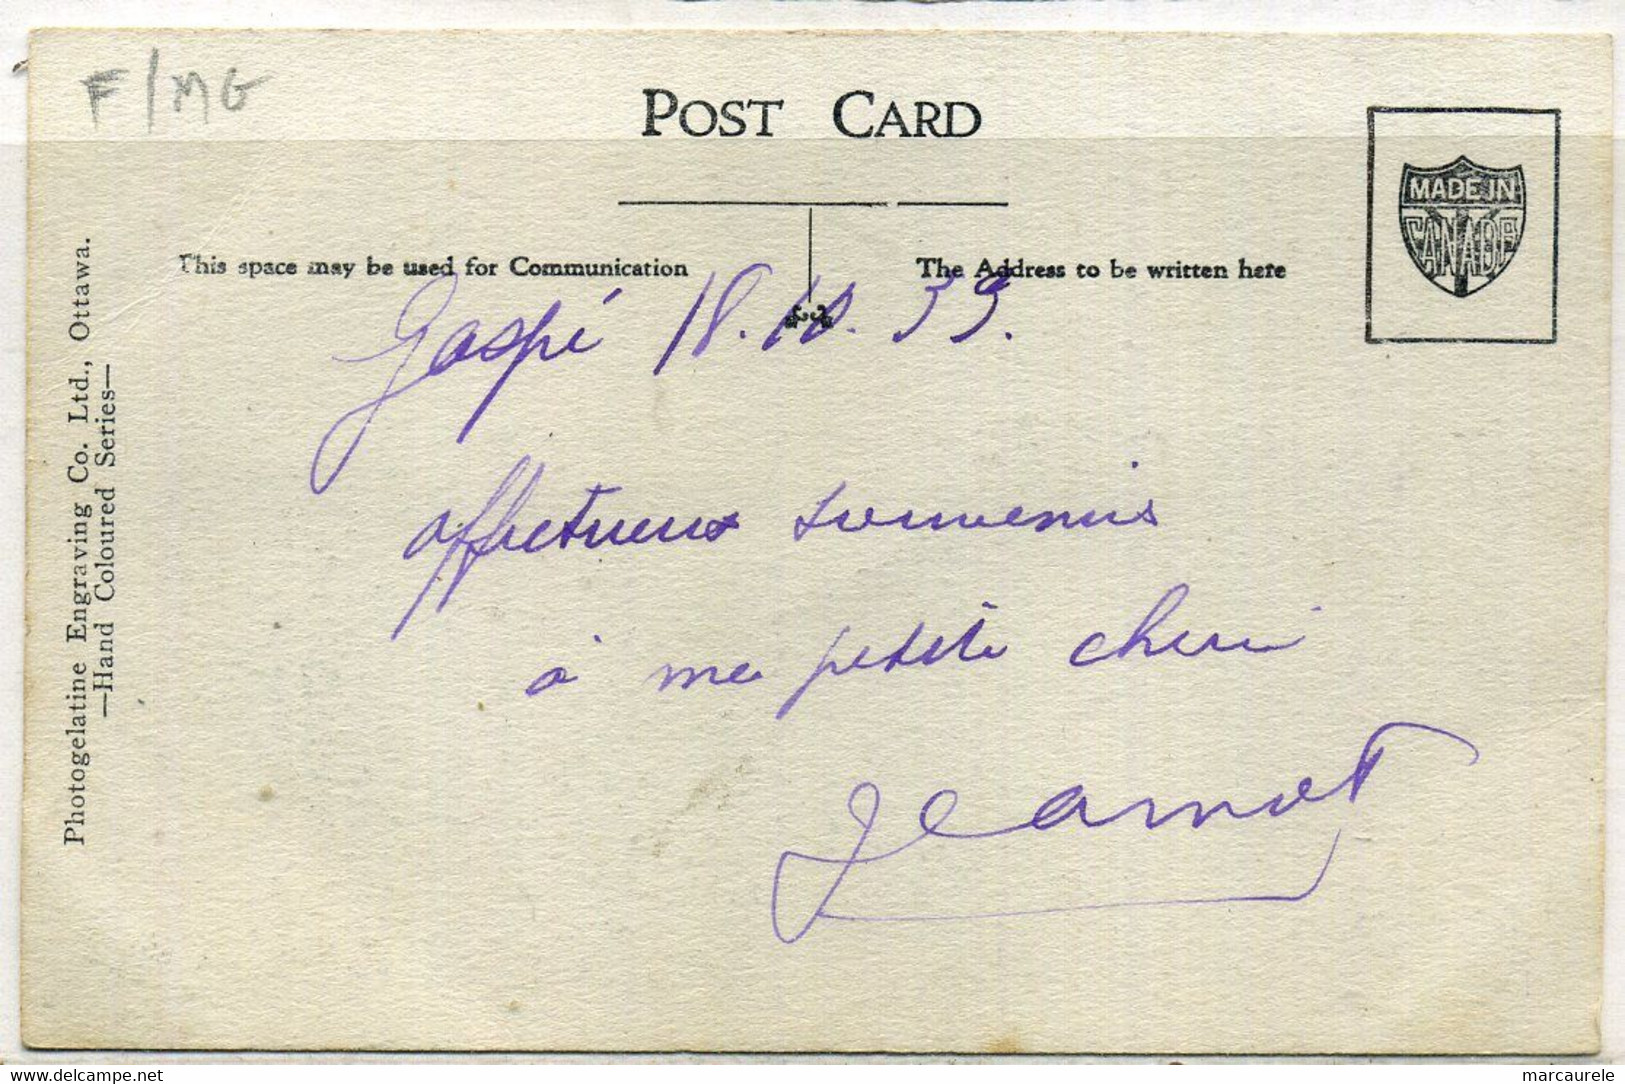 F/MG
POST CARD
MADE IN
CANADA
This space may be used for Communication
The Address to be written here
Gaspé 18.10.33.
affectueux souvenirs
à ma petite cherie
Jeannot
Photogelatine Engraving Co. Ltd., Ottawa.
—Hand Coloured Series—
www.delcampe.net
marcaurele